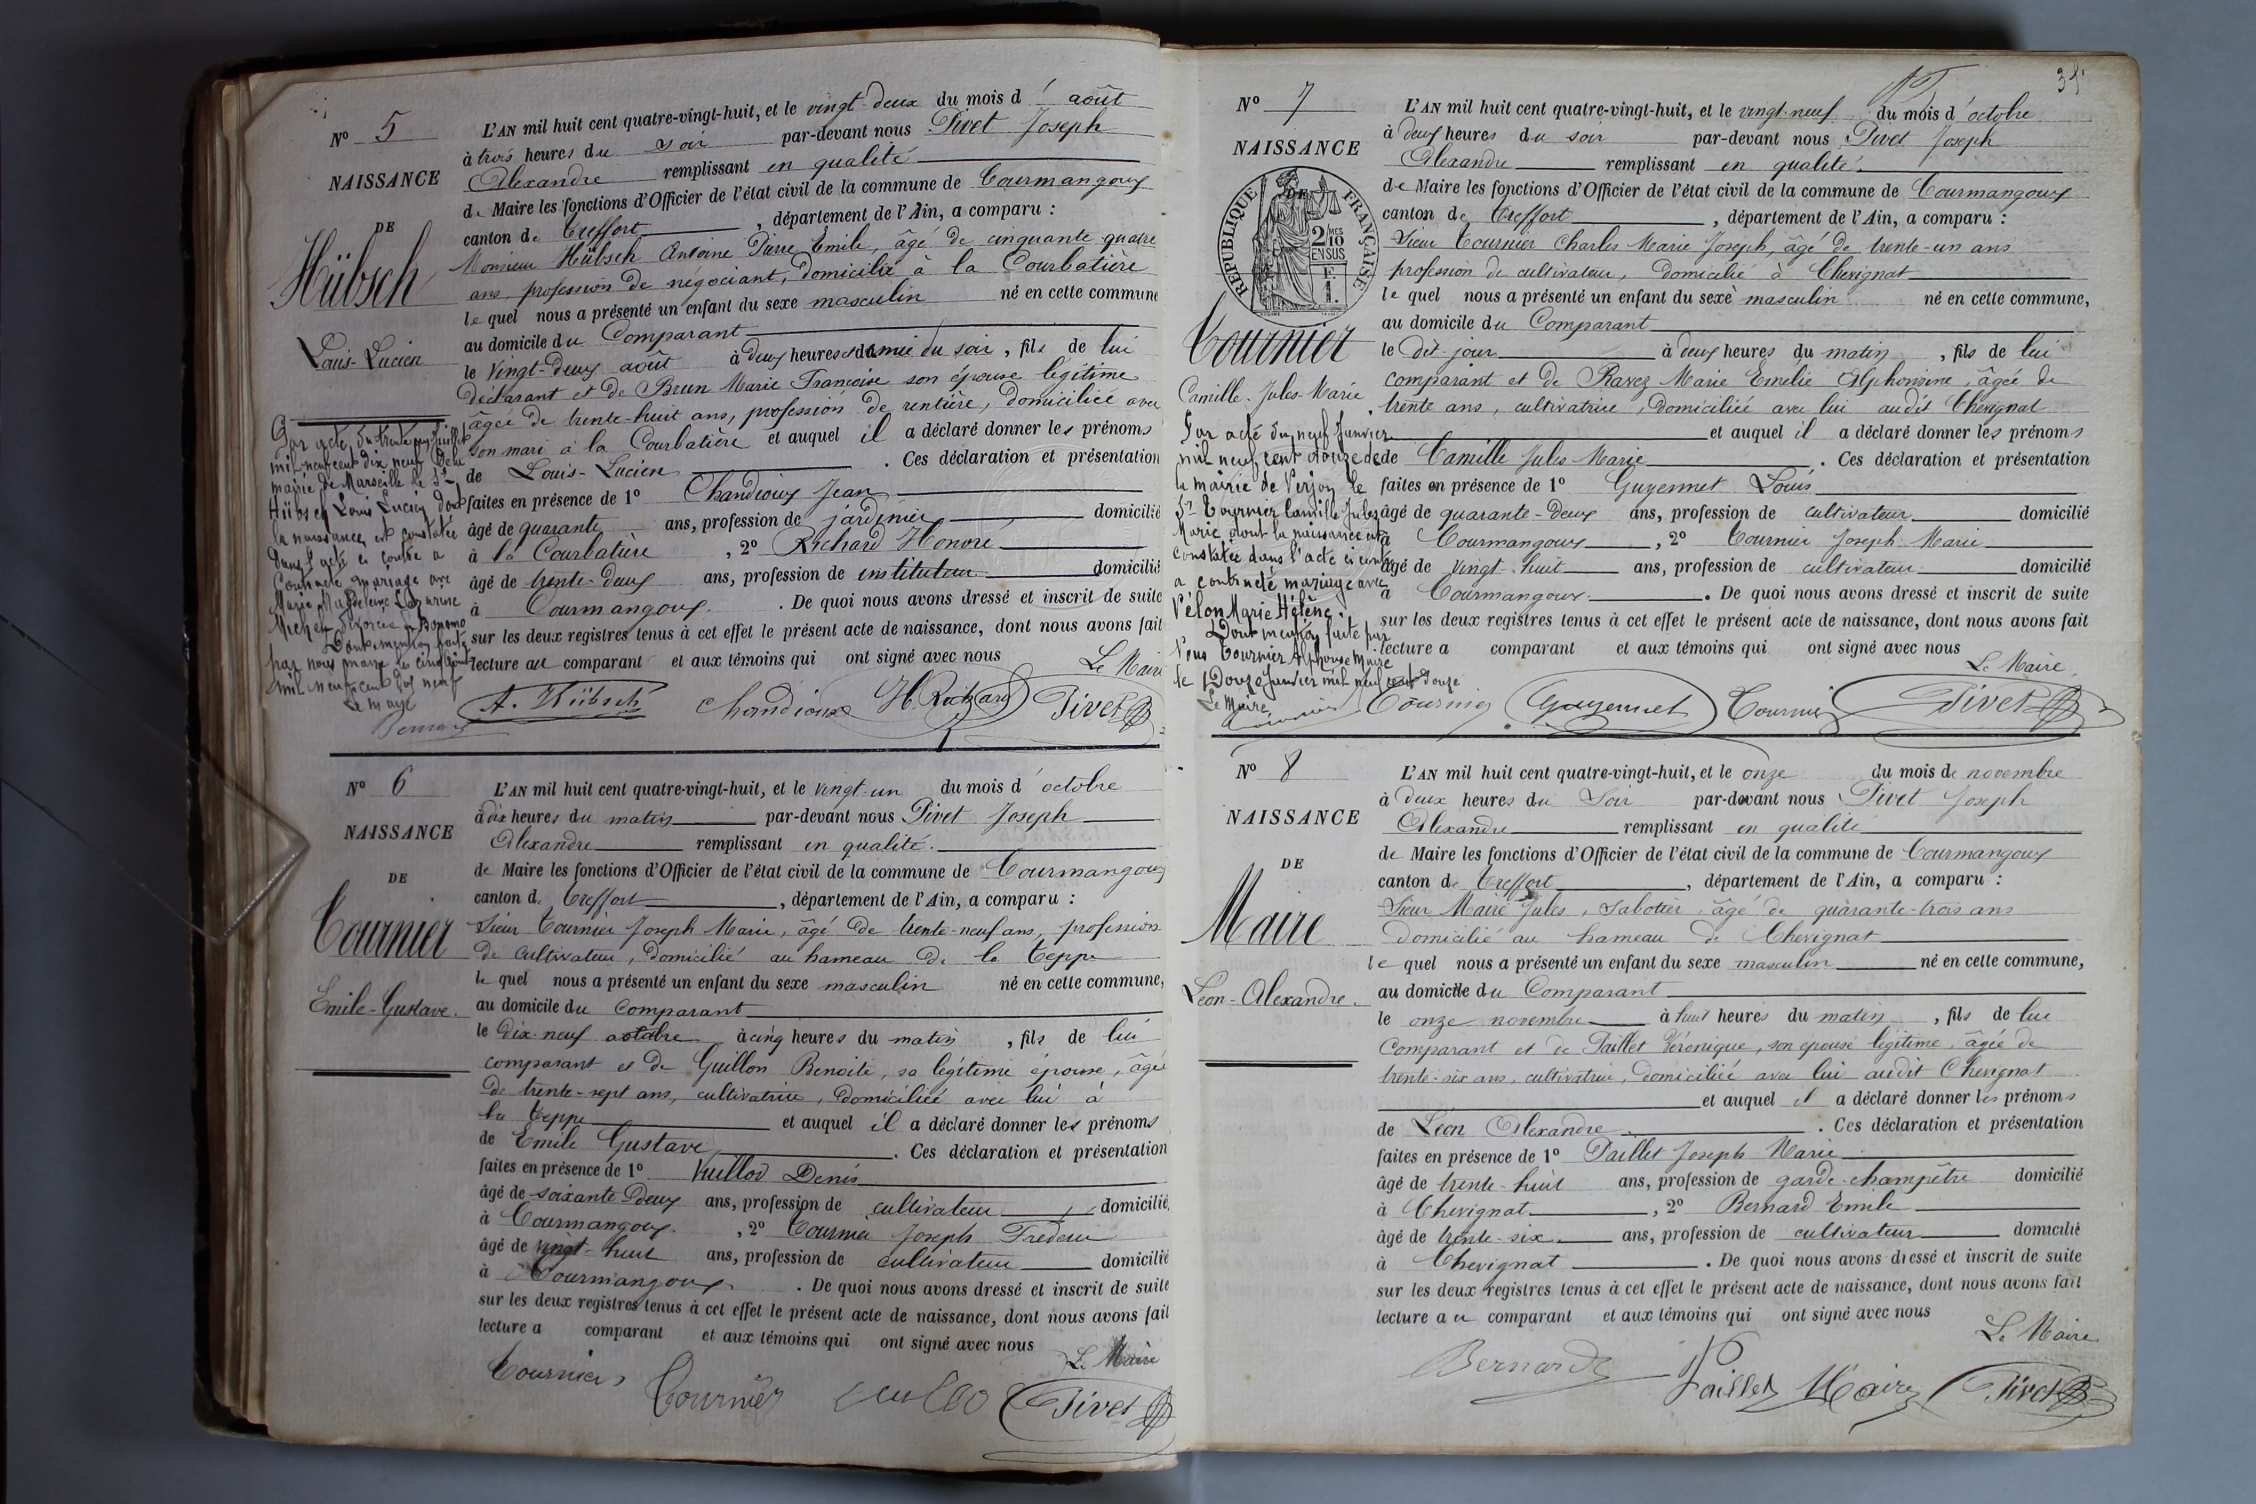 Nº 5
NAISSANCE
DE
Hübsch
Louis-Lucien
Par acte du trente un Juillet
mil neuf cent dix neuf de la
mairie de Marseille le Sr
Hübsch Louis Lucien dont
la naissance est constatée
dans l'acte ci contre a
contracté mariage avec
Marie Magdeleine
divorcée
Dont mention faite
par nous maire le cinq août
mil neuf cent dix neuf
Le maire
L'AN mil huit cent quatre-vingt-huit, et le vingt-deux du mois d'août
à trois heures du soir par-devant nous Pivet Joseph
Alexandre remplissant en qualité
de Maire les fonctions d'Officier de l'état civil de la commune de Courmangoux
canton de Treffort, département de l'Ain, a comparu :
Monsieur Hübsch Antoine Pierre Emile, âgé de cinquante-quatre
ans, profession de négociant, domicilié à la Courbatière
lequel nous a présenté un enfant du sexe masculin né en cette commune
au domicile du Comparant
le vingt-deux août à deux heures et demie du soir, fils de lui
déclarant et de Brun Marie Françoise son épouse légitime
âgée de trente-huit ans, profession de rentière, domiciliée avec
son mari à la Courbatière et auquel il a déclaré donner les prénoms
de Louis-Lucien. Ces déclaration et présentation
faites en présence de 1º Chandioux Jean
âgé de quarante ans, profession de jardinier domicilié
à la Courbatière, 2º Richard Honoré
âgé de trente-deux ans, profession de instituteur domicilié
à Courmangoux. De quoi nous avons dressé et inscrit de suite
sur les deux registres tenus à cet effet le présent acte de naissance, dont nous avons fait
lecture au comparant et aux témoins qui ont signé avec nous
Le Maire
A. Hübsch Chandioux H. Richard Pivet
Nº 6
NAISSANCE
DE
Tournier
Emile-Gustave.
L'AN mil huit cent quatre-vingt-huit, et le vingt-un du mois d'octobre
à dix heures du matin par-devant nous Pivet Joseph
Alexandre remplissant en qualité
de Maire les fonctions d'Officier de l'état civil de la commune de Courmangoux
canton de Treffort, département de l'Ain, a comparu :
Sieur Tournier Joseph Marie, âgé de trente-neuf ans, profession
de cultivateur, domicilié au hameau de la Teppe
lequel nous a présenté un enfant du sexe masculin né en cette commune,
au domicile du Comparant
le dix-neuf octobre à cinq heures du matin, fils de lui
comparant et de Guillon Benoite, sa légitime épouse, âgée
de trente-sept ans, cultivatrice, domiciliée avec lui à
la Teppe et auquel il a déclaré donner les prénoms
de Emile Gustave. Ces déclaration et présentation
faites en présence de 1º Vuillod Denis
âgé de soixante deux ans, profession de cultivateur domicilié
à Courmangoux, 2º Tournier Joseph
âgé de vingt-huit ans, profession de cultivateur domicilié
à Courmangoux. De quoi nous avons dressé et inscrit de suite
sur les deux registres tenus à cet effet le présent acte de naissance, dont nous avons fait
lecture a comparant et aux témoins qui ont signé avec nous
Le Maire
Tournier Tournier Pivet
35
Nº 7
NAISSANCE
DE
RÉPUBLIQUE FRANÇAISE
2 MES 10 EN SUS
F. 1.
Tournier
Camille-Jules-Marie
Par acte du neuf Janvier
mil neuf cent douze de
la mairie de Verjon le
Sr Tournier Camille Jules
Marie dont la naissance est
constatée dans l'acte ci contre
a contracté mariage avec
Vélon Marie Hélène.
Dont mention faite par
Nous Tournier Alphonse Maire
le Douze Janvier mil neuf cent douze
Le Maire
Tournier
L'AN mil huit cent quatre-vingt-huit, et le vingt-neuf du mois d'octobre
à deux heures du soir par-devant nous Pivet Joseph
Alexandre remplissant en qualité
de Maire les fonctions d'Officier de l'état civil de la commune de Courmangoux
canton de Treffort, département de l'Ain, a comparu :
Sieur Tournier Charles Marie Joseph, âgé de trente-un ans
profession de cultivateur, domicilié à Chevignat
lequel nous a présenté un enfant du sexe masculin né en cette commune,
au domicile du Comparant
le dit jour à deux heures du matin, fils de lui
comparant et de Ravez Marie Emélie Alphonsine, âgée de
trente ans, cultivatrice, domiciliée avec lui audit Chevignat
et auquel il a déclaré donner les prénoms
de Camille Jules Marie. Ces déclaration et présentation
faites en présence de 1º Guyennet Louis
âgé de quarante-deux ans, profession de cultivateur domicilié
à Courmangoux, 2º Tournier Joseph Marie
âgé de vingt-huit ans, profession de cultivateur domicilié
à Courmangoux. De quoi nous avons dressé et inscrit de suite
sur les deux registres tenus à cet effet le présent acte de naissance, dont nous avons fait
lecture a comparant et aux témoins qui ont signé avec nous
Le Maire
Tournier Guyennet Tournier Pivet
Nº 8
NAISSANCE
DE
Maire
Léon-Alexandre.
L'AN mil huit cent quatre-vingt-huit, et le onze du mois de novembre
à deux heures du soir par-devant nous Pivet Joseph
Alexandre remplissant en qualité
de Maire les fonctions d'Officier de l'état civil de la commune de Courmangoux
canton de Treffort, département de l'Ain, a comparu :
Sieur Maire Jules, sabotier, âgé de quarante-trois ans
domicilié au hameau de Chevignat
lequel nous a présenté un enfant du sexe masculin né en cette commune,
au domicile du Comparant
le onze novembre à huit heures du matin, fils de lui
Comparant et de Paillet Véronique, son épouse légitime, âgée de
trente-six ans, cultivatrice, domiciliée avec lui audit Chevignat
et auquel il a déclaré donner les prénoms
de Léon Alexandre. Ces déclaration et présentation
faites en présence de 1º Paillet Joseph Marie
âgé de trente-huit ans, profession de garde-champêtre domicilié
à Chevignat, 2º Bernard Emile
âgé de trente-six ans, profession de cultivateur domicilié
à Chevignat. De quoi nous avons dressé et inscrit de suite
sur les deux registres tenus à cet effet le présent acte de naissance, dont nous avons fait
lecture au comparant et aux témoins qui ont signé avec nous
Le Maire
Bernard Paillet Maire Pivet